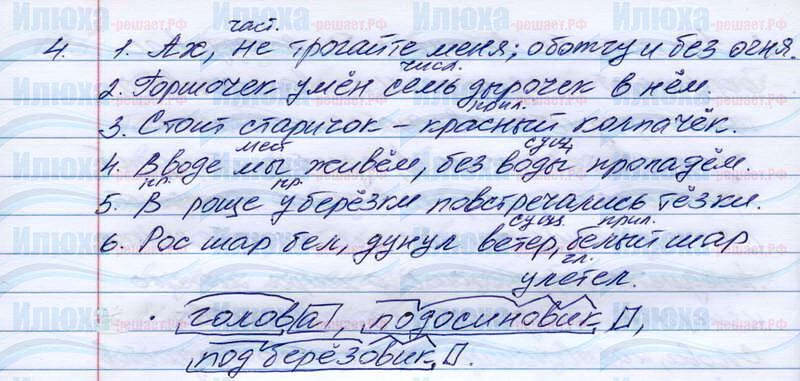 част.
4. 1. Ах, не трогайте меня; обожгу и без огня.
числ.
2. Горшочек умён семь дырочек в нём.
прил.
3. Стоит старичок – красный колпачёк.
мест сущ
4. В воде мы живём, без воды пропадём.
пр. пр.
5. В роще у берёзки повстречались тёзки.
сущ. прил.
6. Рос шар бел, дунул ветер, белый шар
гл.
улетел.
· голова, подосиновик □,
подберёзовик □.
Илюха-решает.РФ